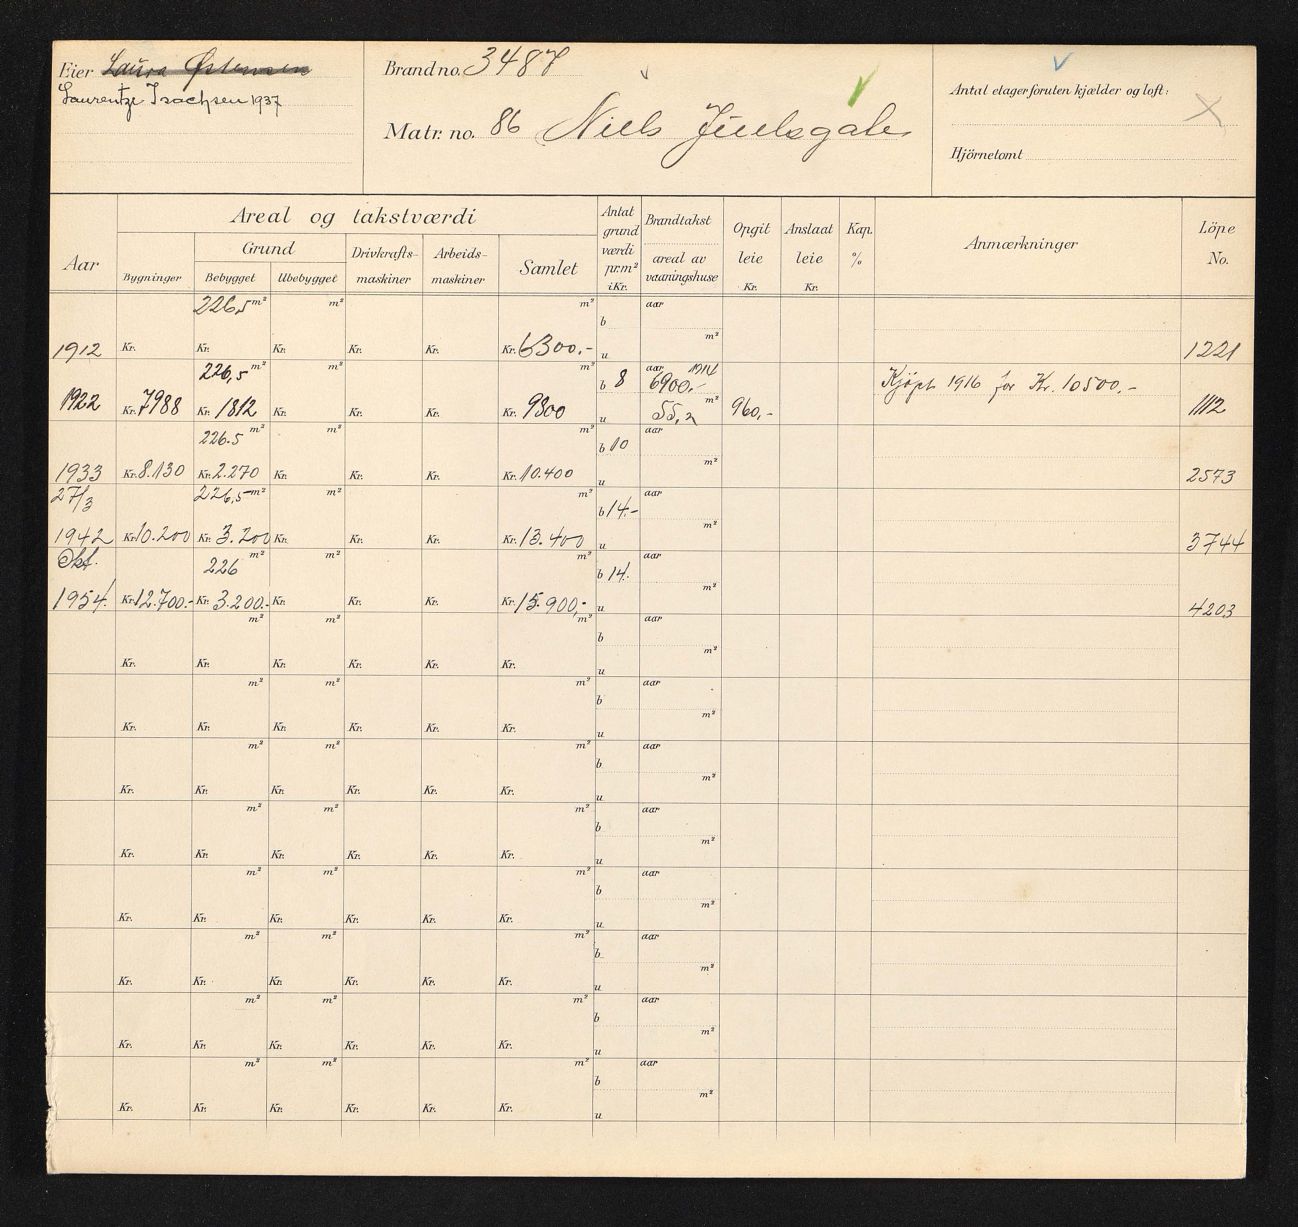 Eier Laura Østensen
Laurentze Isachsen 1937
Brand no. 3487
Matr. no. 86 Niels Juelsgate
Antal etager foruten kjælder og loft:
Hjörnetomt
Aar
Areal og takstværdi
Bygninger
Grund
Bebygget
Ubebygget
Drivkrafts-maskiner
Arbeids-maskiner
Samlet
Antat grund værdi pr. m² i Kr.
Brandtakst
areal av vaaningshuse
Opgit leie Kr.
Anslaat leie Kr.
Kap. %
Anmærkninger
Löpe No.
226,5 m² m² m² aar
b
m²
1912 Kr. Kr. Kr. Kr. Kr. Kr. 6300,- u 1221
226,5 m² m² m² b 8 aar 1914 6900,- Kjöpt 1916 for Kr. 10500,-
1922 Kr. 7988 Kr. 1812 Kr. Kr. Kr. Kr. 9800 u 55,2 m² 960,- 1112
226.5 m² m² m² b 10 aar
m²
1933 Kr. 8.130 Kr. 2.270 Kr. Kr. Kr. Kr. 10.400 u 2573
27/3 226,5 m² m² m² b 14.- aar
m²
1942 Kr. 10.200 Kr. 3.200 Kr. Kr. Kr. Kr. 13.400 u 3744
Okt. 226 m² m² m² b 14. aar
m²
1954. Kr. 12.700.- Kr. 3.200.- Kr. Kr. Kr. Kr. 15.900,- u 4203
m² m² m² aar
b
m²
Kr. Kr. Kr. Kr. Kr. Kr. u
m² m² m² aar
b
m²
Kr. Kr. Kr. Kr. Kr. Kr. u
m² m² m² aar
b
m²
Kr. Kr. Kr. Kr. Kr. Kr. u
m² m² m² aar
b
m²
Kr. Kr. Kr. Kr. Kr. Kr. u
m² m² m² aar
b
m²
Kr. Kr. Kr. Kr. Kr. Kr. u
m² m² m² aar
b
m²
Kr. Kr. Kr. Kr. Kr. Kr. u
m² m² m² aar
b
m²
Kr. Kr. Kr. Kr. Kr. Kr. u
m² m² m² aar
b
m²
Kr. Kr. Kr. Kr. Kr. Kr. u